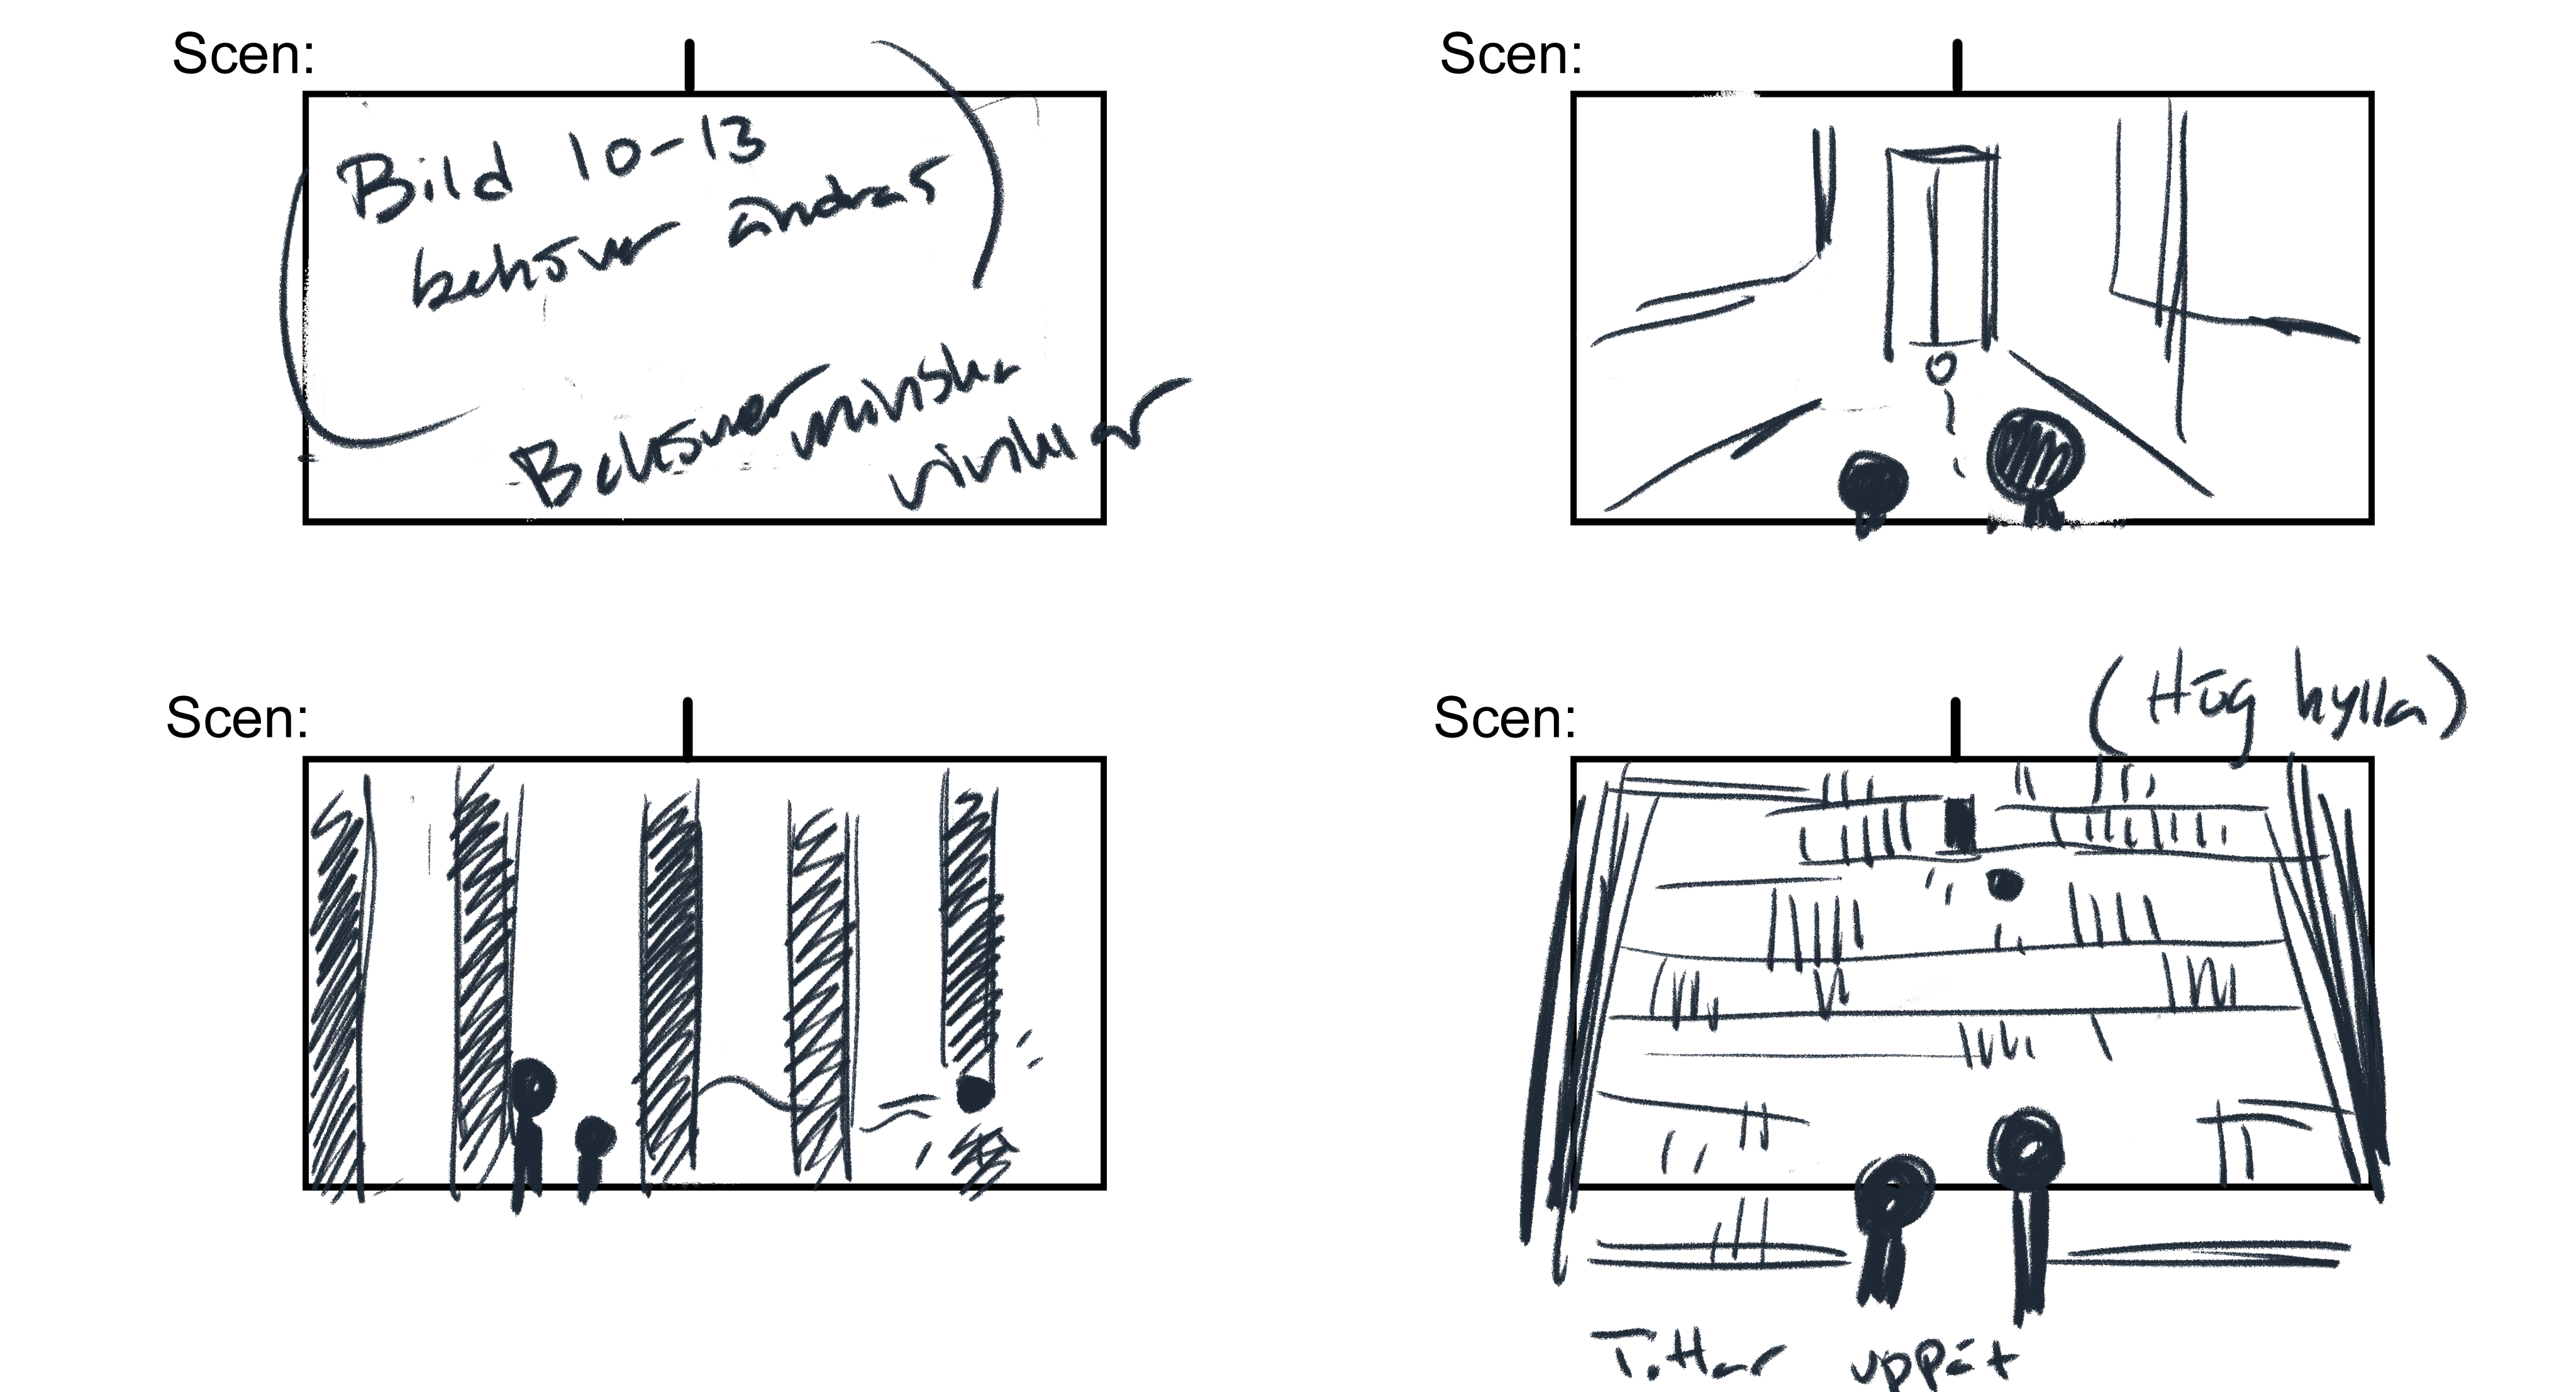 Scen:
Bild 10-13
behöver ändras
Behöver minska
vinklar
Scen:
Scen:
Scen:
(Hög hylla)
Tittar uppåt